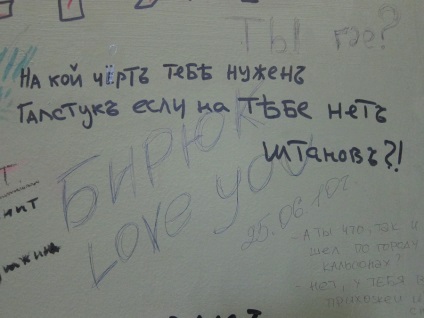 ТЫ где?
НА КОЙ ЧЁРТЪ ТЕБѢ НУЖЕНЪ
ГАЛСТУКЪ ЕСЛИ НА ТѢБЕ НЕТЪ
ШТАНОВЪ?!
БИРЮК
LOVE YOU
25.06.10г
- А ТЫ ЧТО, ТАК И
ШЕЛ ПО ГОРОДУ
- КАЛЬСОНАХ?
- НЕТ, У ТЕБЯ